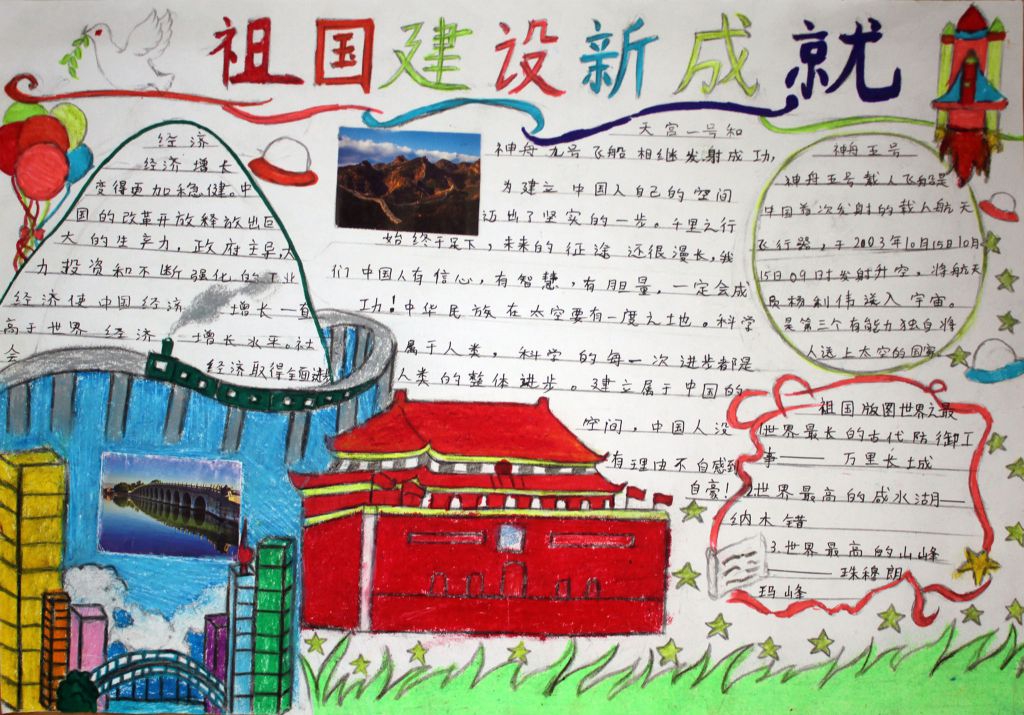 祖国建设新成就
经济
经济增长
变得更加稳健。中
国的改革开放释放出巨
大的生产力，政府主导，大
力投资和不断强化的工业
经济使中国经济增长一直
高于世界经济增长水平。社
会
经济取得全面进步
天宫一号和
神舟九号飞船相继发射成功，
为建立中国人自己的空间
迈出了坚实的一步。千里之行
始终于足下，未来的征途还很漫长，我
们中国人有信心，有智慧，有胆量，一定会成
功！中华民族在太空要有一度之地。科学
属于人类，科学的每一次进步都是
人类的整体进步。建立属于中国的
空间，中国人没
有理由不自感到
自豪！
神舟五号
神舟五号载人飞船是
中国首次发射的载人航天
飞行器，于2003年10月15日10月
15日09日时发射升空，将航天
员杨利伟送入宇宙。
是第三个有能力独自将
人送上太空的国家
祖国版图世界之最
1世界最长的古代防御工
事——万里长城
2.世界最高的咸水湖—
纳木错
3.世界最高的山峰
——珠穆朗
玛峰